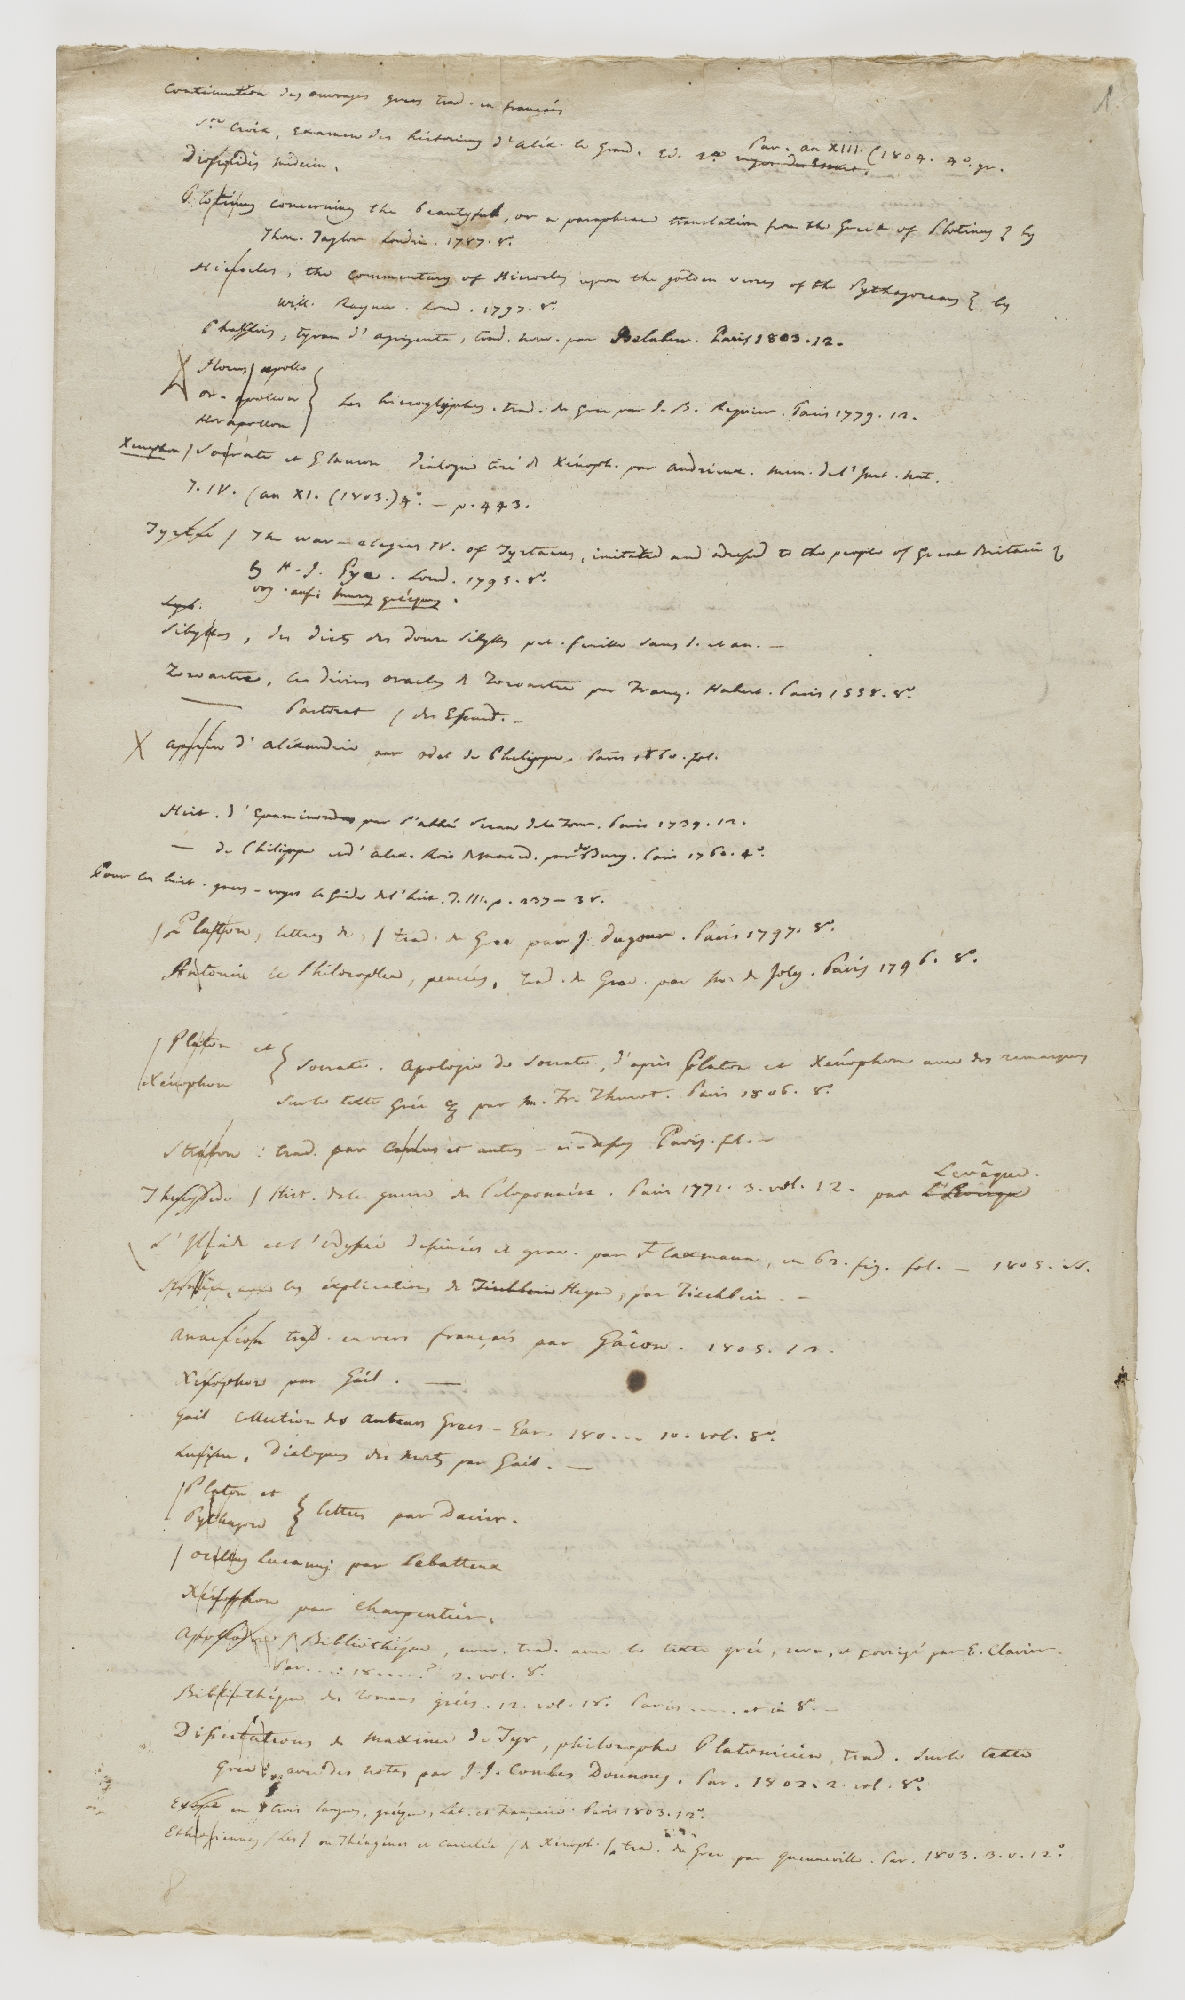 1.
Continuation des ouvrages grecs trad. en français
Ste Croix, Examen des historiens d'Alex. le Grand. Ed. 2e Par. an XIII. (1804. 4o. gr.
médecin.
Plotinus concerning the beautyful, or a paraphrase translation from the Greek of Plotinus by
Thom. Taylor Londin. 1787. 8o
Hierocles, the commentary of Hierocles upon the golden verses of the Pythagoreans by
Will. Rayner. Lond. 1797. 8o
Phalaris, tyran d'Agrigente, trad. nouv. par Paris 1803. 12.
Horus apollo
or-apollon
Horapollon
Les hieroglyphes. trad. du Grec par J. B. Requier. Paris 1779. 12.
Xenophon / Socrate et Glaucon dialogue tiré de Xénoph. par Andrieux. mem. de l'Inst. nat.
T. IV. (an XI. (1803.) 4o. — p. 443.
Tyrtée / The war-elegies of Tyrtaeus, imitated and adressed to the people of Great Britain
by H. J. Pye. Lond. 1795. 8o.
voy. aussi muses grecques.
Sibylles, des dicts des douze Sibylles pet. feuille sans l. et an. —
Zoroastre, les divins oracles de Zoroastre par Franç. Habert. Paris 1558. 8o
— Pastoret / des
X Appien d'Alexandrie par Odet de Philippe. Paris fol.
Hist. d'Epaminondas par l'abbé Seran de la Tour. Paris 1739. 12.
— de Philippe et d'Alex. Rois de Maced. par de Bury. Paris 1760. 4o.
Pour les hist. grecs - voyez le guide de l'hist. T. III. p. 237 - 38.
/ Platon, lettres de, / trad. du Grec par J. Dugour. Paris 1797. 8o.
Antonin le Philosophe, pensées, trad. du Grec par de Joly. Paris 1796. 8o.
/ Platon et
Xénophon
Socrate. Apologie de Socrate, d'après Platon et Xénophon avec des remarques
sur le texte grec par M. Fr. Thurot. Paris 1806. 8o.
Strabon : trad. par et autres — Paris.
Thucydide / Hist. de la guerre du Peloponnèse. Paris 3. vol. 12. par Levêque.
L'Iliade et l'Odyssée dessinées et grav. par Flaxmann, en 62. fig. fol. — 1803.
les explications de Heyne, par Tischbein. —
Anacréon trad. en vers français par Gâcon. 1805. 12.
Xénophon par Gail. —
Gail collection des auteurs Grecs - Par. 180... 10. vol. 8o.
Lucien, Dialogues des morts par Gail. —
/ Platon et
Pythagore
lettres par Dacier.
/ ocellus Lucanus par Lebatteux
Xénophon par Charpentier.
Apollodore / Bibliothèque, nouv. trad. avec le texte grec, revu, et corrigé par E. Clavier.
Par. ... 18.....? 2. vol. 8o.
Bibliothéque des romans grecs. 12. vol. 18o. Paris ..... et in 8. —
Dissertations de Maxime de Tyr, philosophe Platonicien, trad. sur le texte
Grec avec des notes par J. J. Combes Dounous. Par. 1802. 2. vol. 8o.
Esope en trois langues, gréque, Lat. et Française. Paris 1803. 12o.
Ethiopiennes / Les / ou Théagènes et Cariclée / de Xénoph. / trad. du Grec par Quenneville. Par. 1803. 3. v. 12.o